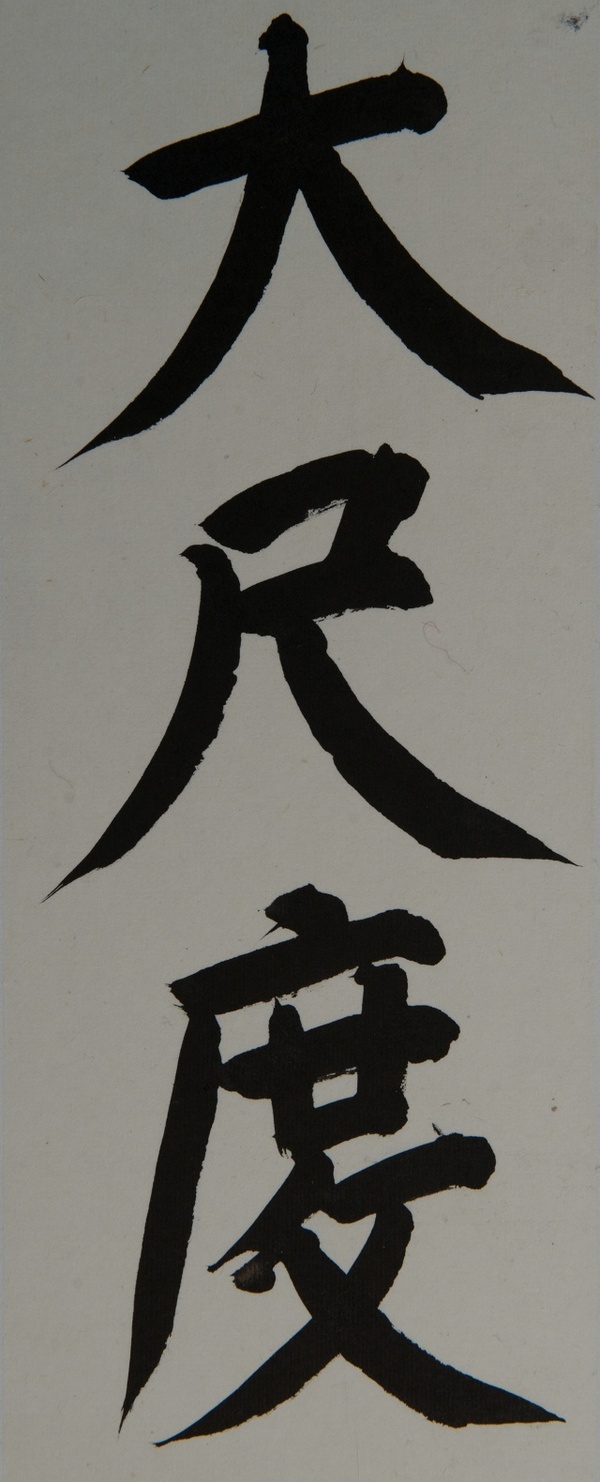 大尺度